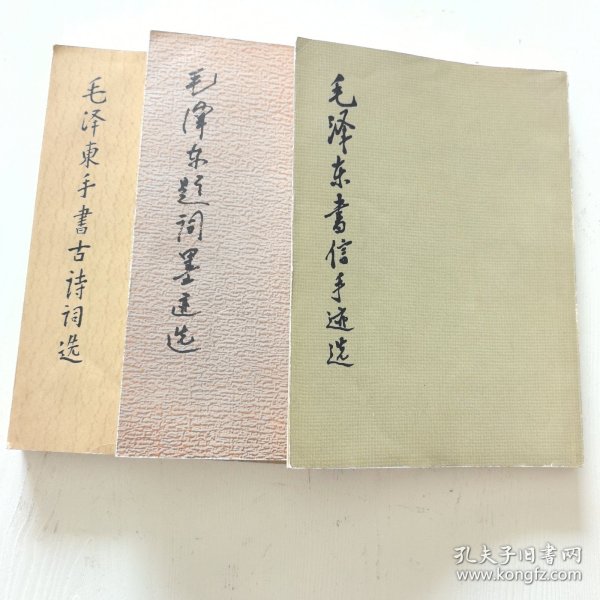 毛泽東手書古诗词选
毛泽东题词墨迹选
毛泽东書信手迹选
孔夫子旧书网
www.kongfz.com